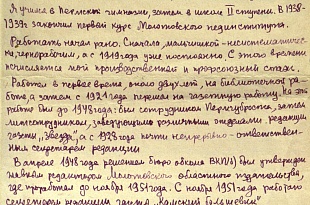 Я учился в Пермской гимназии, затем в школе II ступени. В 1938-
1939г. закончил первый курс Молотовского пединститута.
Работать начал рано. Сначала, мальчишкой - неквалифи-
чернорабочим, а с 1919 года уже постоянно. С этого времени
исчисляется мой производственный и профсоюзный стаж.
Работал в первое время около двух лет, на библиотечной ра-
боте, а затем с 1921 года перешел на газетную работу. На этой
работе был до 1948 года: был сотрудником Пермгуброста, затем
литсотрудником, заведующим различными отделами редакции
газеты "Звезда", а с 1928 года почти непрерывно - ответствен-
ным секретарем редакции
В апреле 1948 года решением бюро обкома ВКП(б) был утвержден
главным редактором Молотовского областного издательства,
где проработал до ноября 1951 года. С ноября 1951 года работаю
секретарем редакции газеты "Камский большевик"